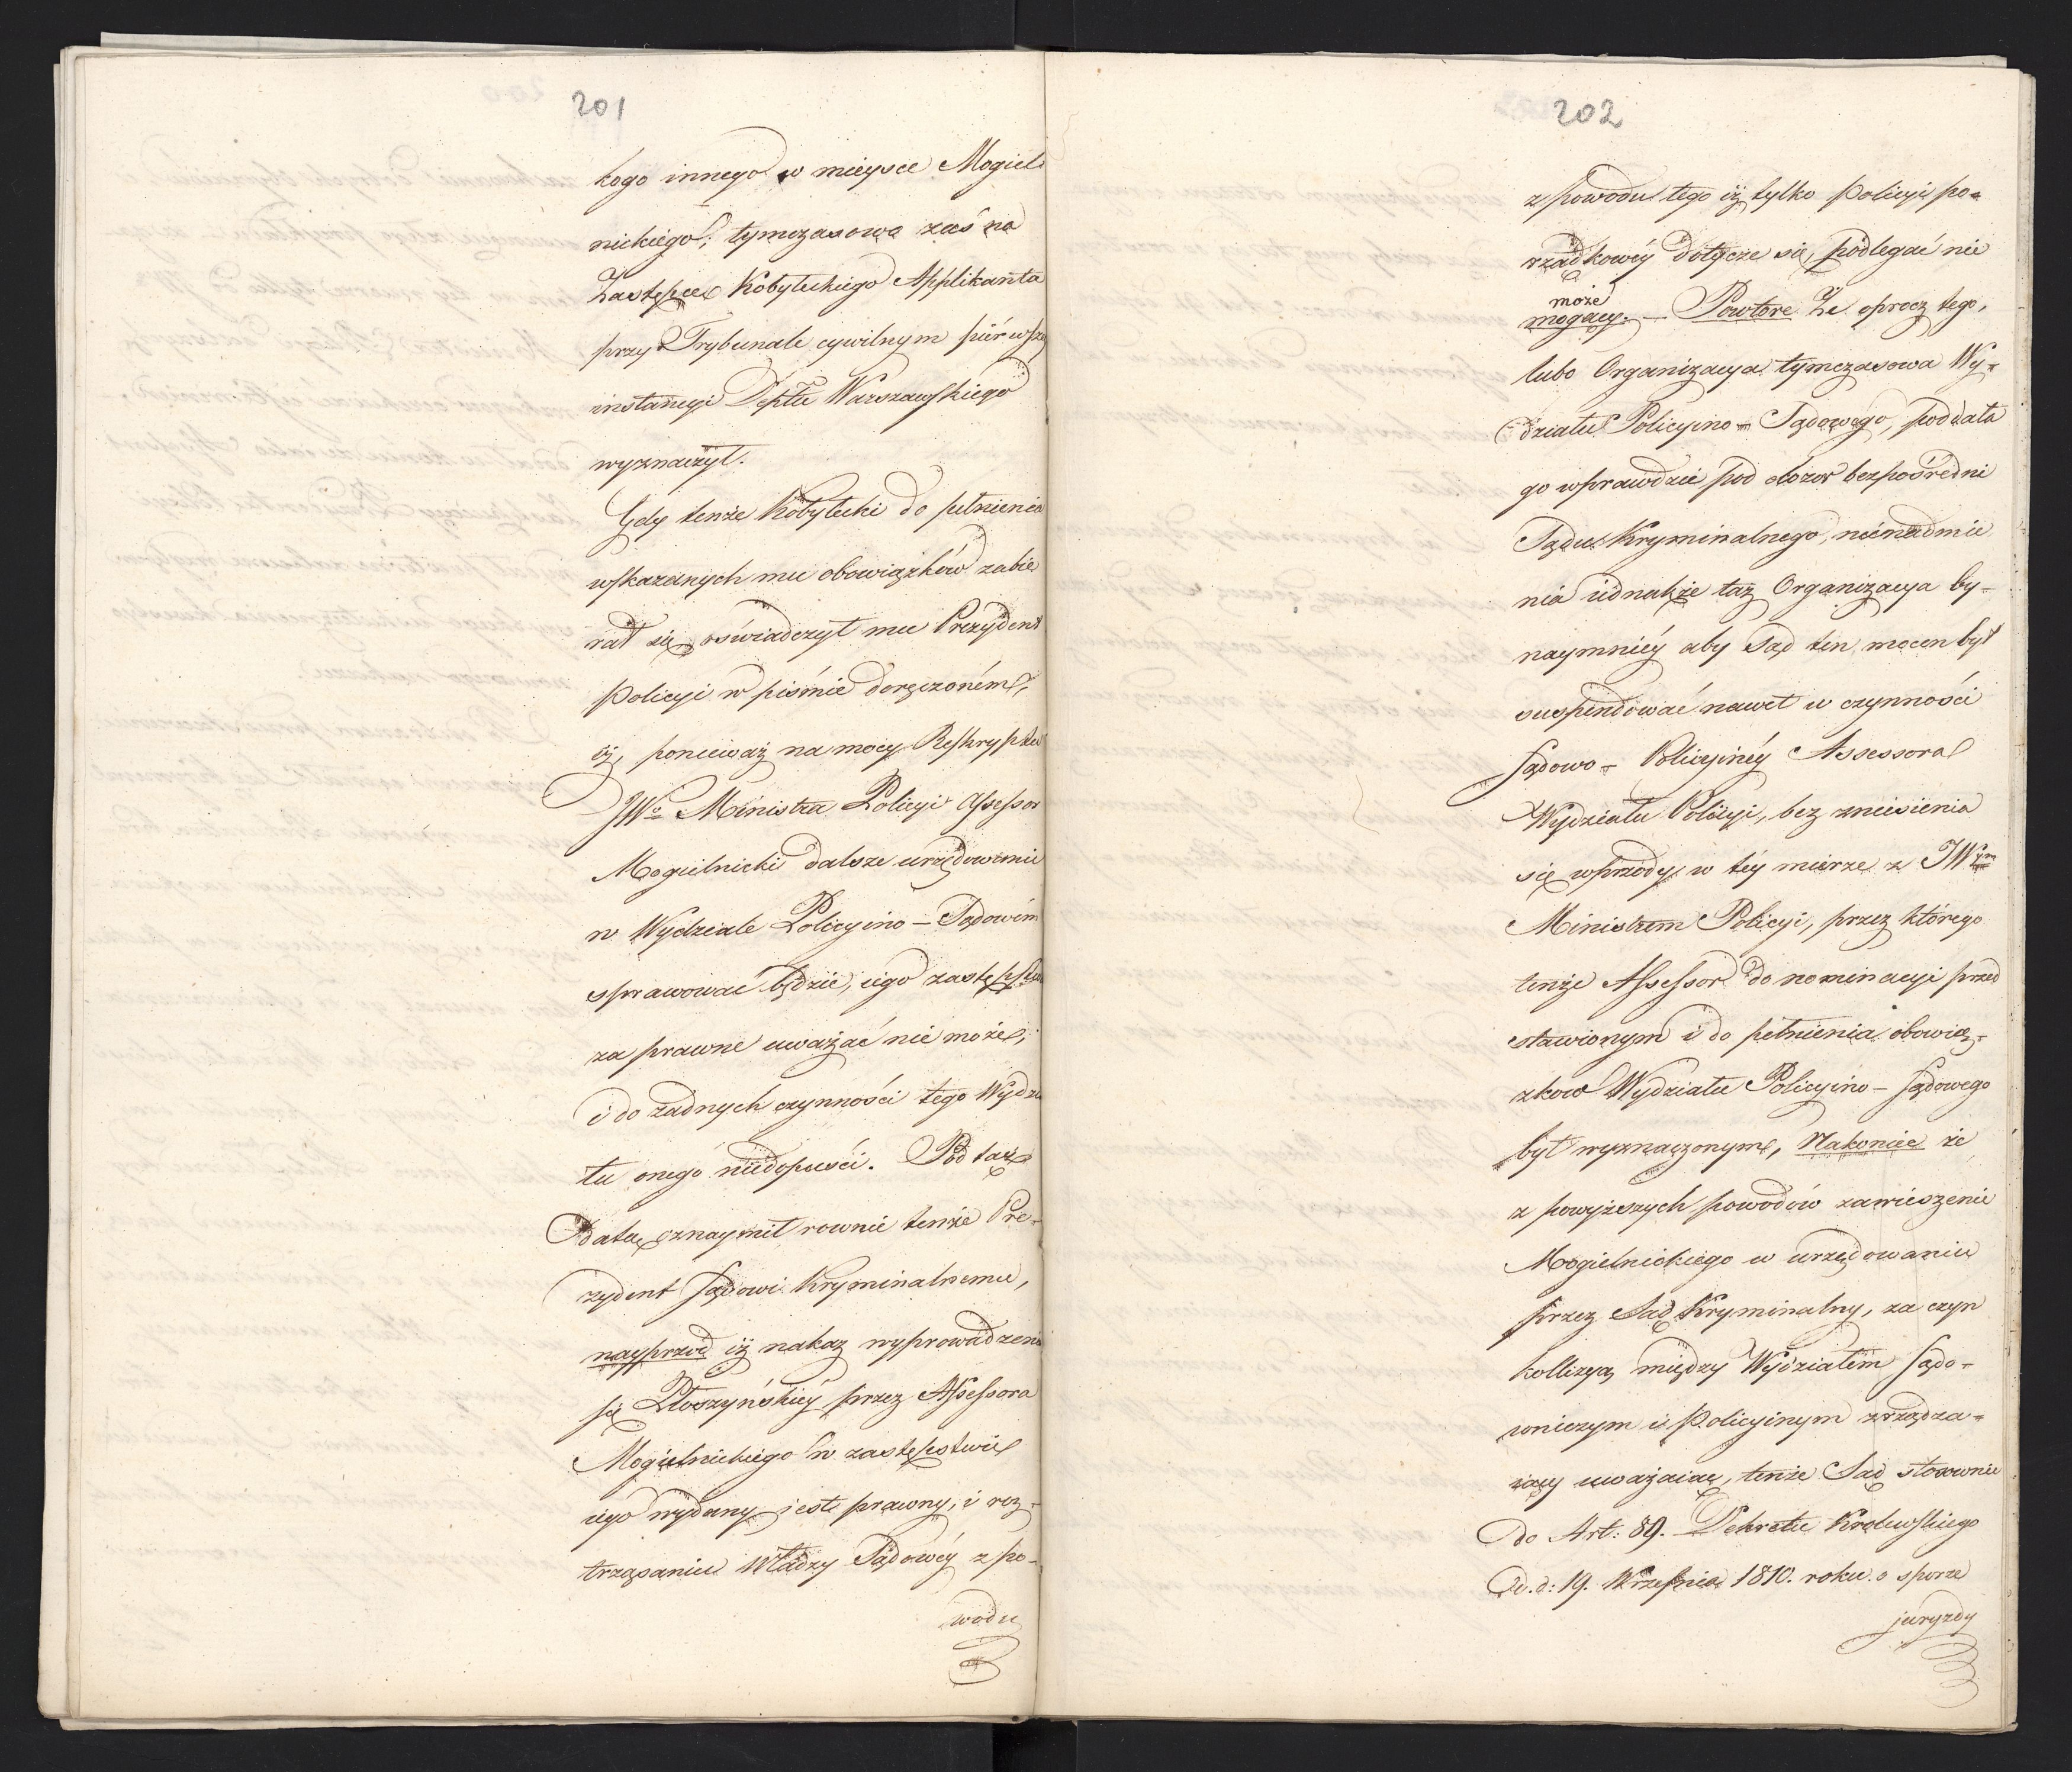 201
kogo innego w mieysce Mogiel
nickiego; tymczasowa zaś na
Zastępcę Kobyleckiego Applikanta
przy Trybunale cywilnym piérwszey
instancyi Deptu Warszawskiego
wyznaczył.
Gdy tenże Kobylecki do pełnienia
wskazanych mu obowiązków zabie
rał się, oświadczył mu Prezydent
Policyi w piśmie doręczoném,
iż, ponieważ na mocy Reskryptu
JWo Ministra Policyi Assessor
Mogielnicki dalsze urzędowanie
w Wydziale Policyino – Sądowém
sprawować będzie, iego zastępstwa
za prawne uważać nie może,
i do żadnych czynności tego Wydzia
łu onego niedopuści. Pod taż
datą oznaymił rownie tenże Pre-
zydent Sądowi Kryminalnemu,
nayprzod iż nakaz wyprowadzenia
się Płoszyńskiéy przez Assessora
Mogielnickiego w zastępstwie
iego wydany jest prawny, i roz-
trząsaniu Władzy Sądowéy z po-
wodu
202
z powodu tego iż tylko Policyi po-
rządkowéy dotycze się, podlegać nie
może
mogący. – Powtore Że oprocz tego,
lubo Organizacya tymczasowa Wy-
działu Policyino – Sądowego, poddała
go wprawdzie pod dozor bezpośredni
Sądu Kryminalnego, nienadmie
nia iednakże taż Organizacya by-
naymniéy aby Sąd ten mocen był
suspendować nawet w czynności
Sądowo – Policyinéy Assessora
Wydziału Policyi, bez zniesienia
się wprzódy w téy mierze z JWym
Ministrem Policyi, przez którego
tenże Assessor do nominacyi przed
stawionym i do pełnienia obowią-
zkow Wydziału Policyino – Sądowego
był wyznaczonym, Nakoniec że
z powyższych powodów zawieszenie
Mogielnickiego w urzędowaniu
przez Sąd Kryminalny, za czyn
kollizyą między Wydziałem Sądo-
wniczym i Policyinym zrządza-
iący uważaiąc, tenże Sąd stosownie
do Art: 89. Dekretu Krolewskiego
d. d: 19. Września 1810. roku o sporze
juryzdy